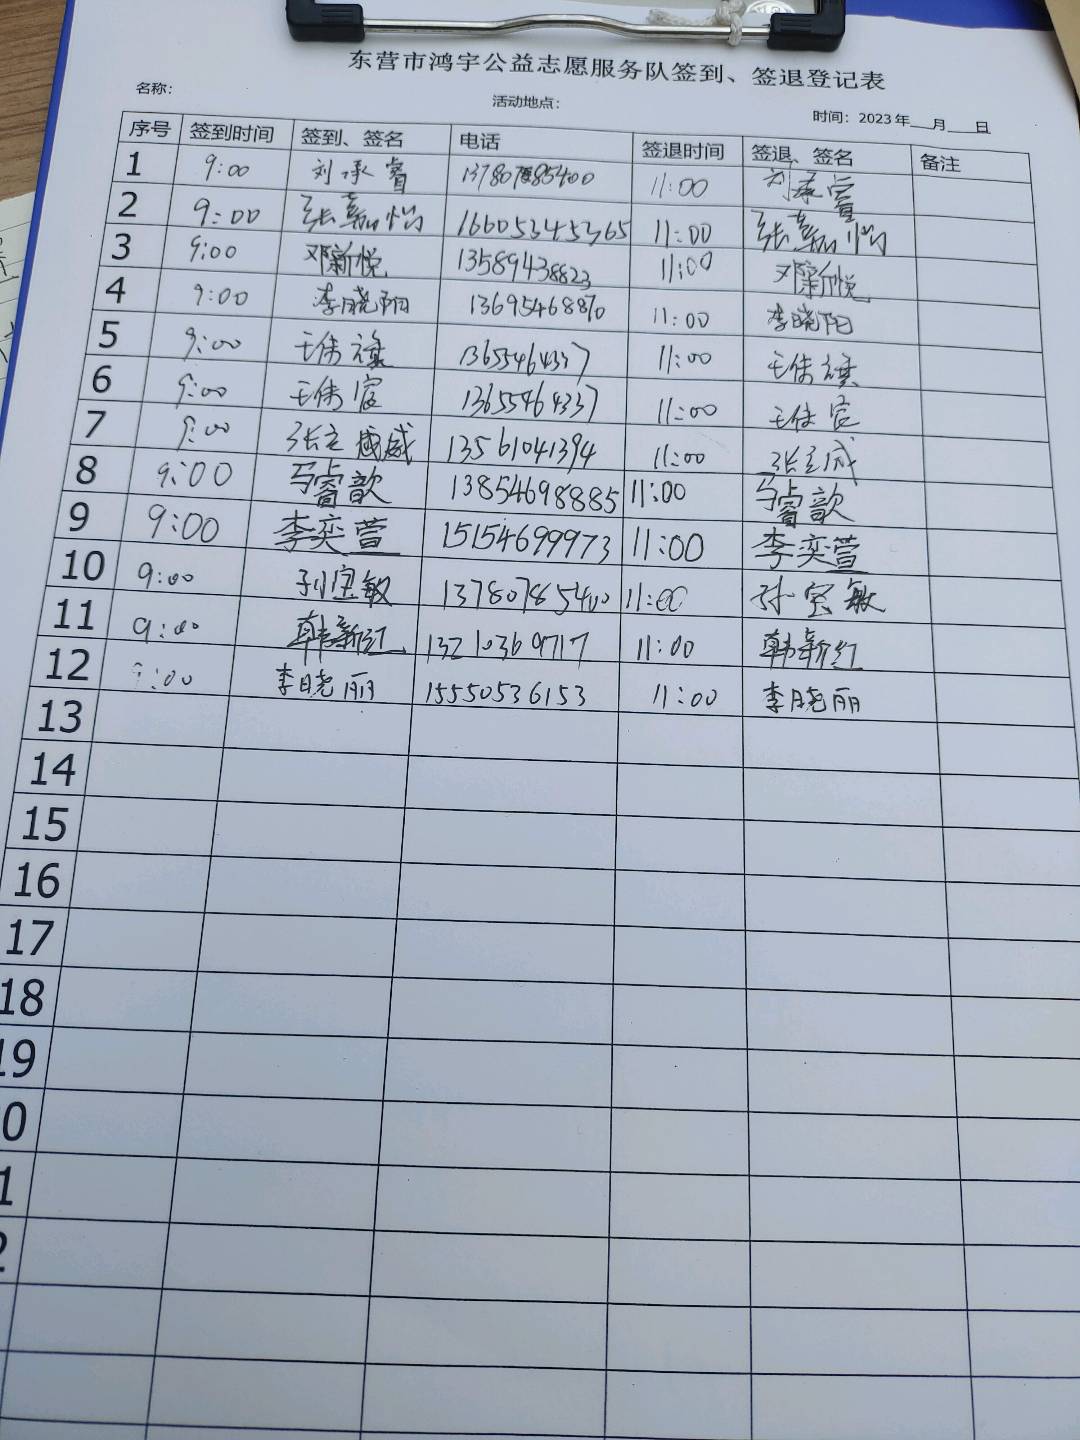 东营市鸿宇公益志愿服务队签到、签退登记表
名称: 活动地点: 时间: 2023年__月__日
序号 签到时间 签到、签名 电话 签退时间 签退、签名 备注
1 9:00 刘承睿 11:00 刘承睿
2 9:00 张嘉怡 16605345365 11:00 张嘉怡
3 9:00 邓新悦 13589438823 11:00 邓新悦
4 9:00 李晓阳 11:00 李晓阳
5 9:00 王倩祺 13655464337 11:00 王倩祺
6 9:00 王倩宸 13655464337 11:00 王倩宸
7 9:00 张立威 13561041394 11:00 张立威
8 9:00 马睿歆 13854698885 11:00 马睿歆
9 9:00 李奕萱 15154699973 11:00 李奕萱
10 9:00 孙宝敏 13780785400 11:00 孙宝敏
11 9:00 韩新红 13210369717 11:00 韩新红
12 9:00 李晓丽 15550536153 11:00 李晓丽
13
14
15
16
17
18
19
0
1
2